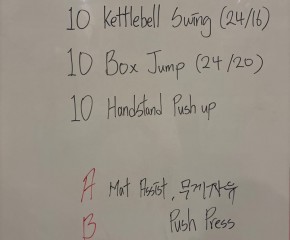 10 Kettlebell Swing (24/16)
10 Box Jump (24/20)
10 Handstand Push up
A Mat Assist, 무게자유
B Push Press